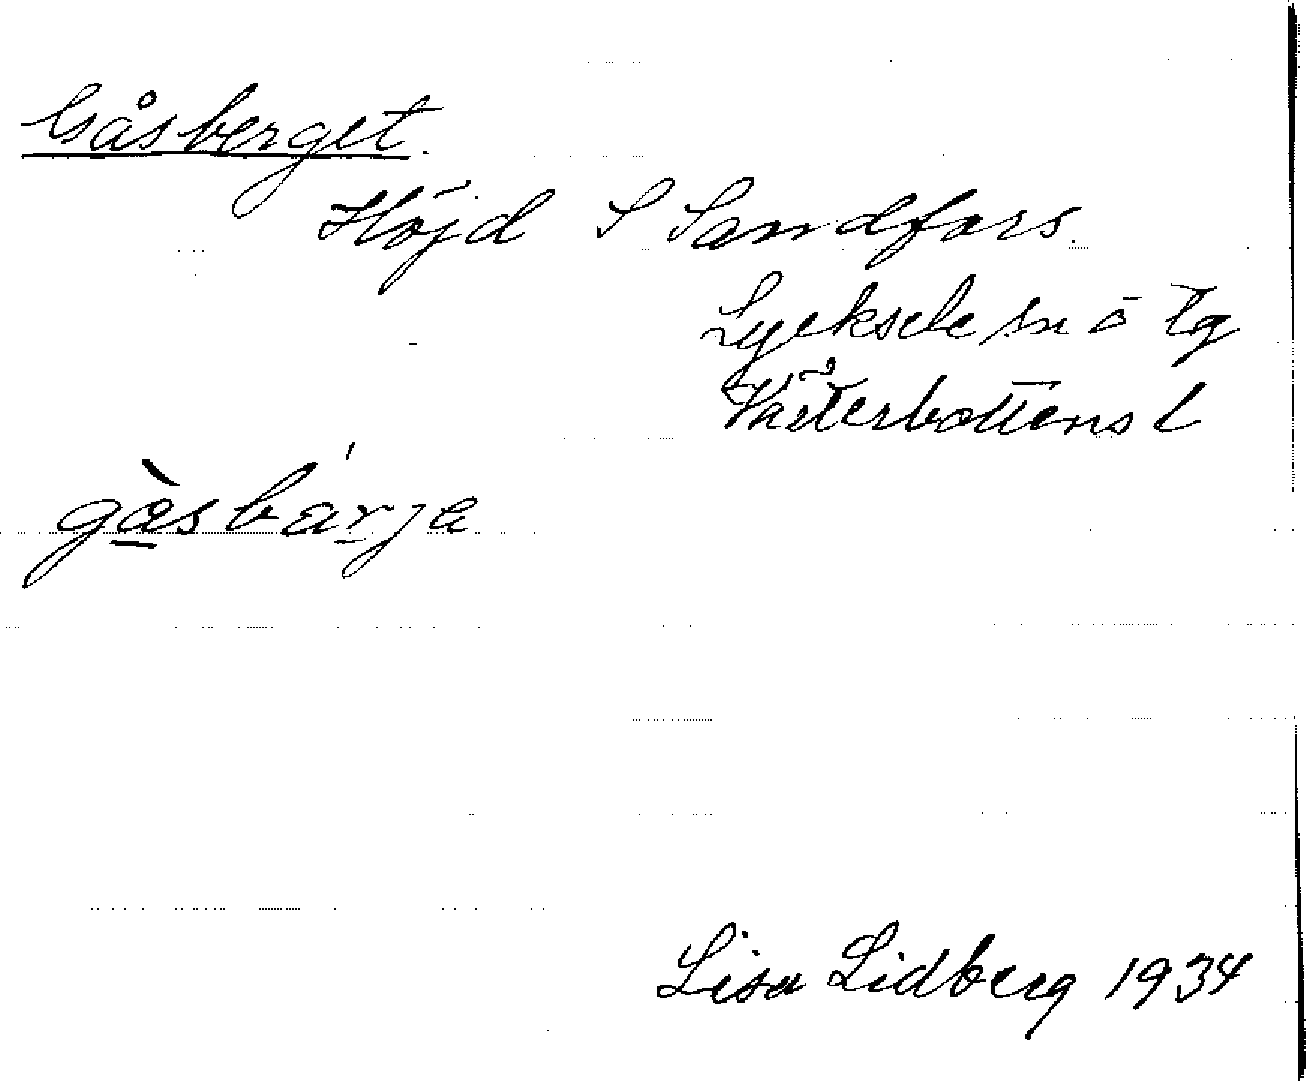 Gåsberget.
Höjd S Sandfors.
Lycksele sn o tg
Västerbottens l
gàsbárja
Lisa Lidberg 1934